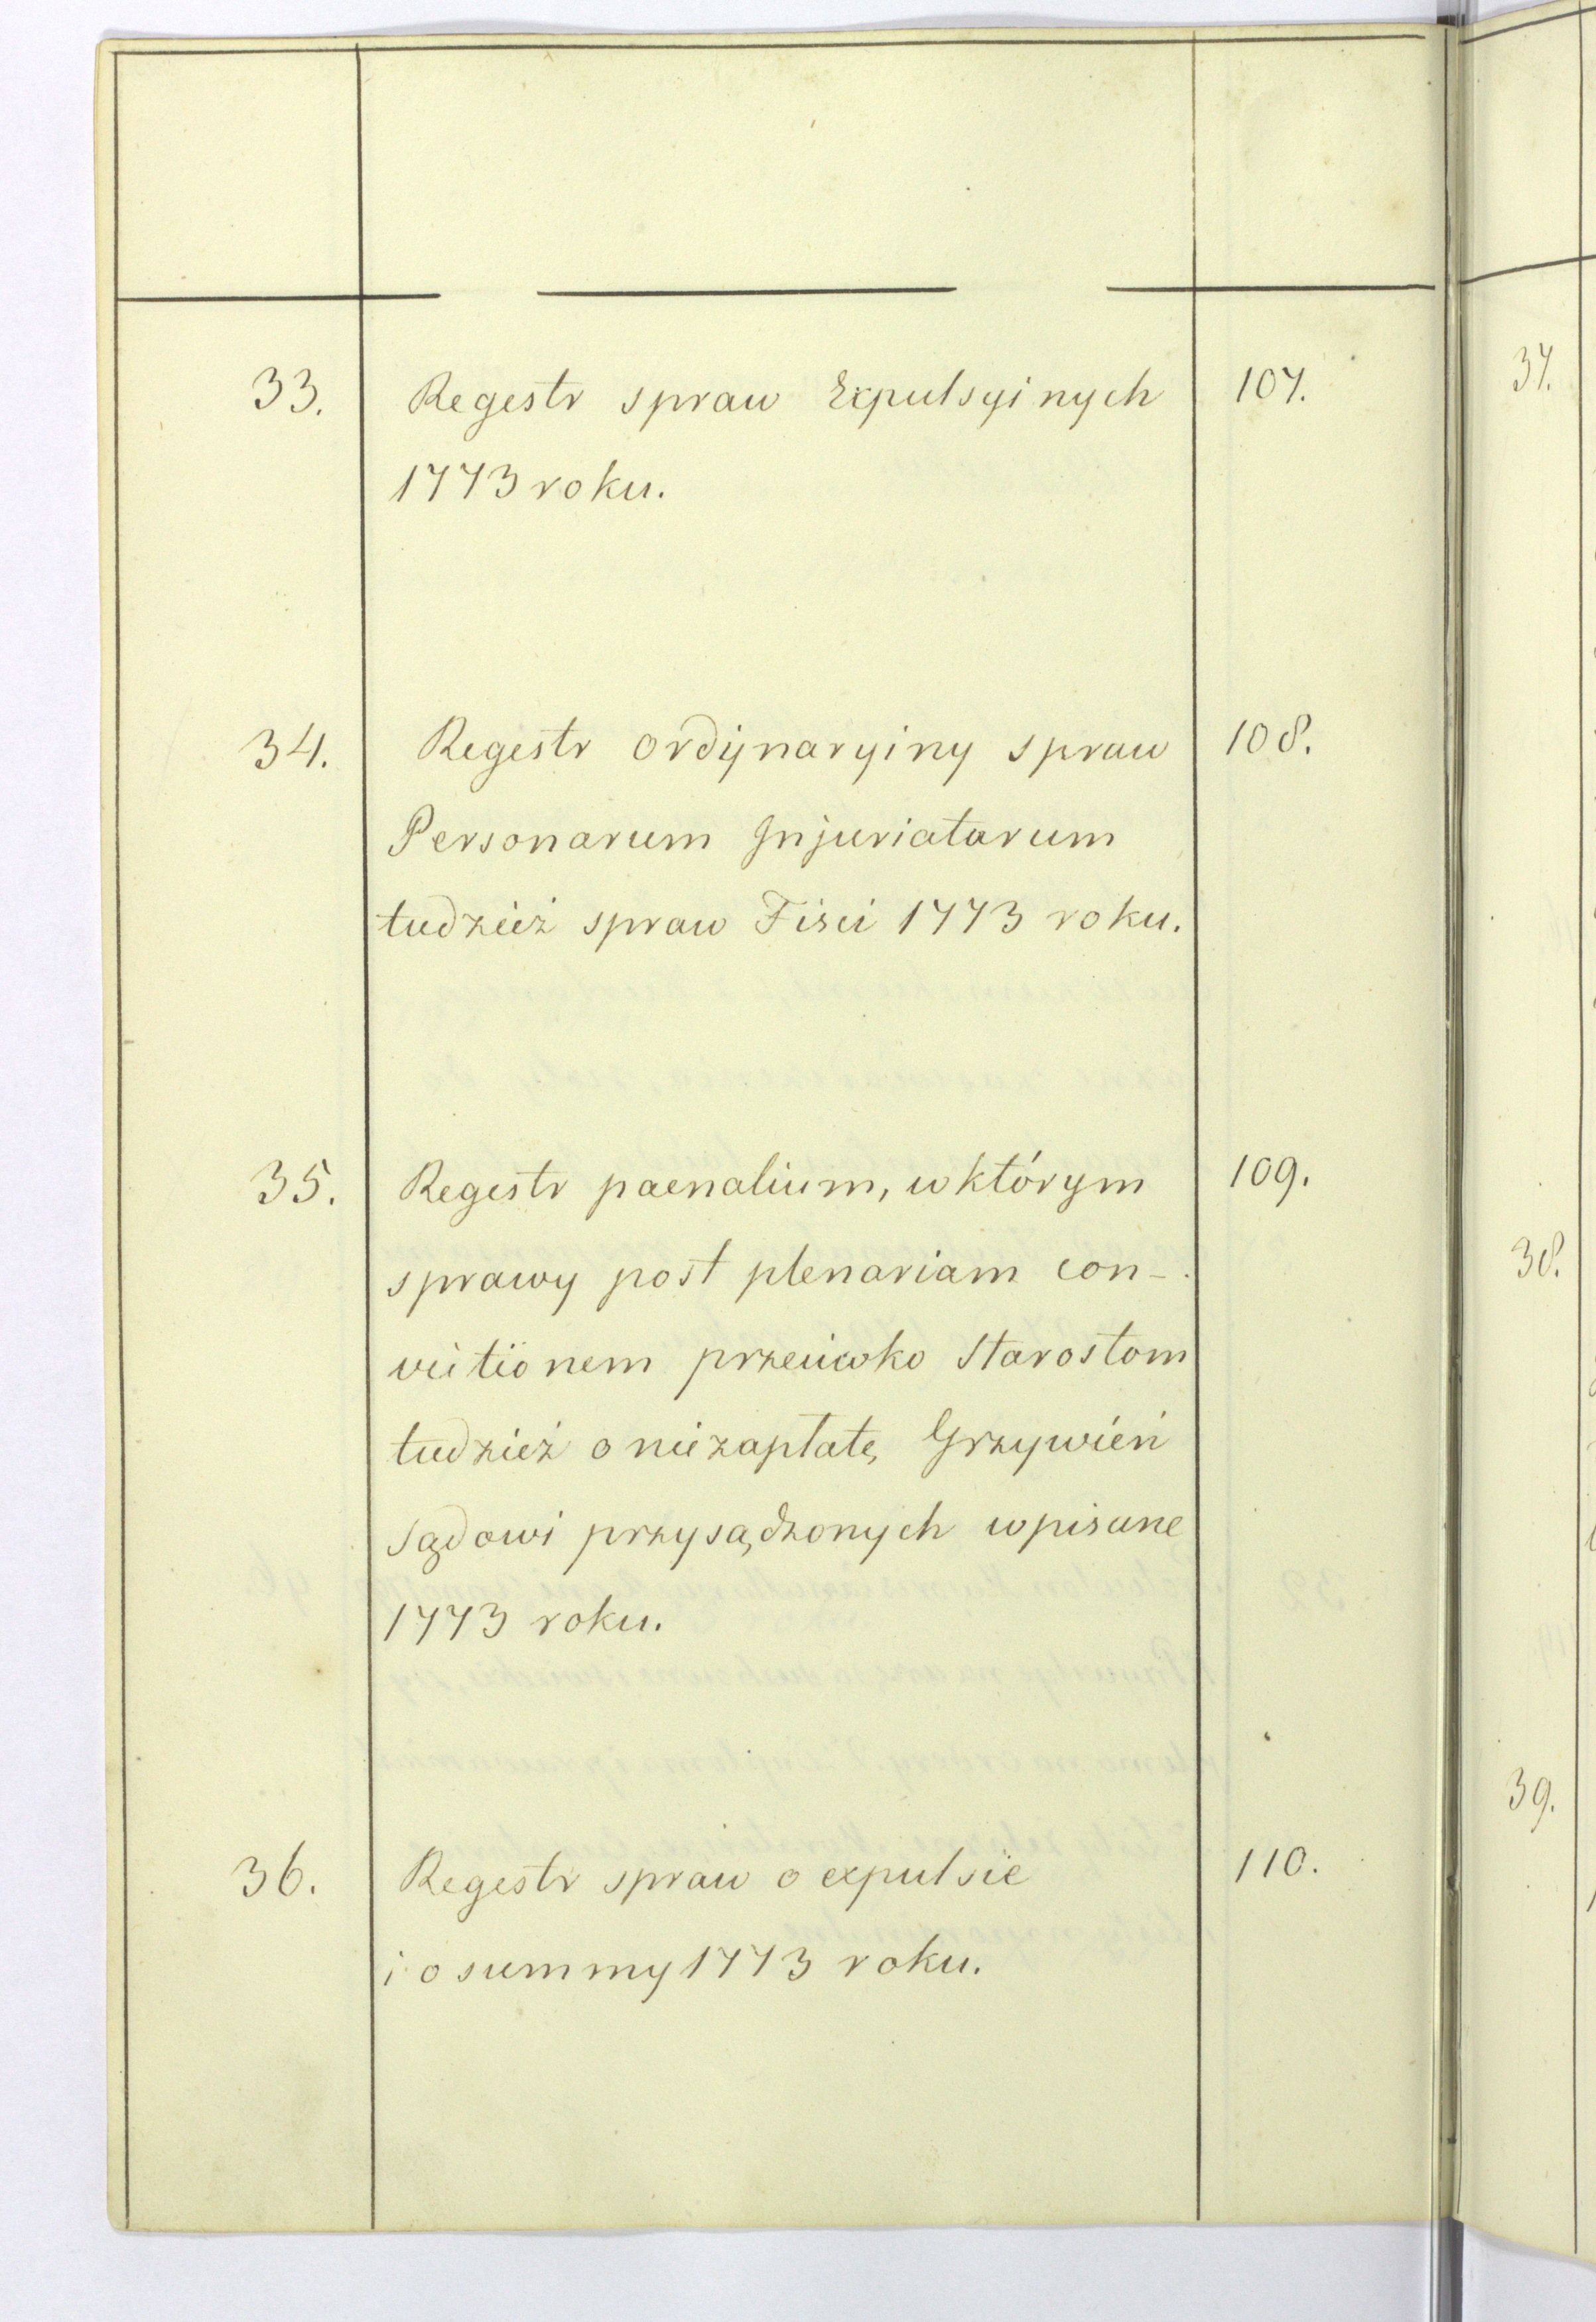 33. Regestr spraw Expulsyinych 107.
1773 roku.
34. Regestr ordynaryiny spraw 108.
Personarum Injuriatarum
tudzież spraw Fisci 1773 roku.
35. Regestr paenalium, w którym 109.
sprawy post plenariam con-
victionem przeciwko Starostom
tudzież o niezapłatę Grzywień
sądowi przysądzonych wpisane
1773 roku.
36. Regestr spraw o expulsie 110.
i o summy 1773 roku.
37.
38.
39.